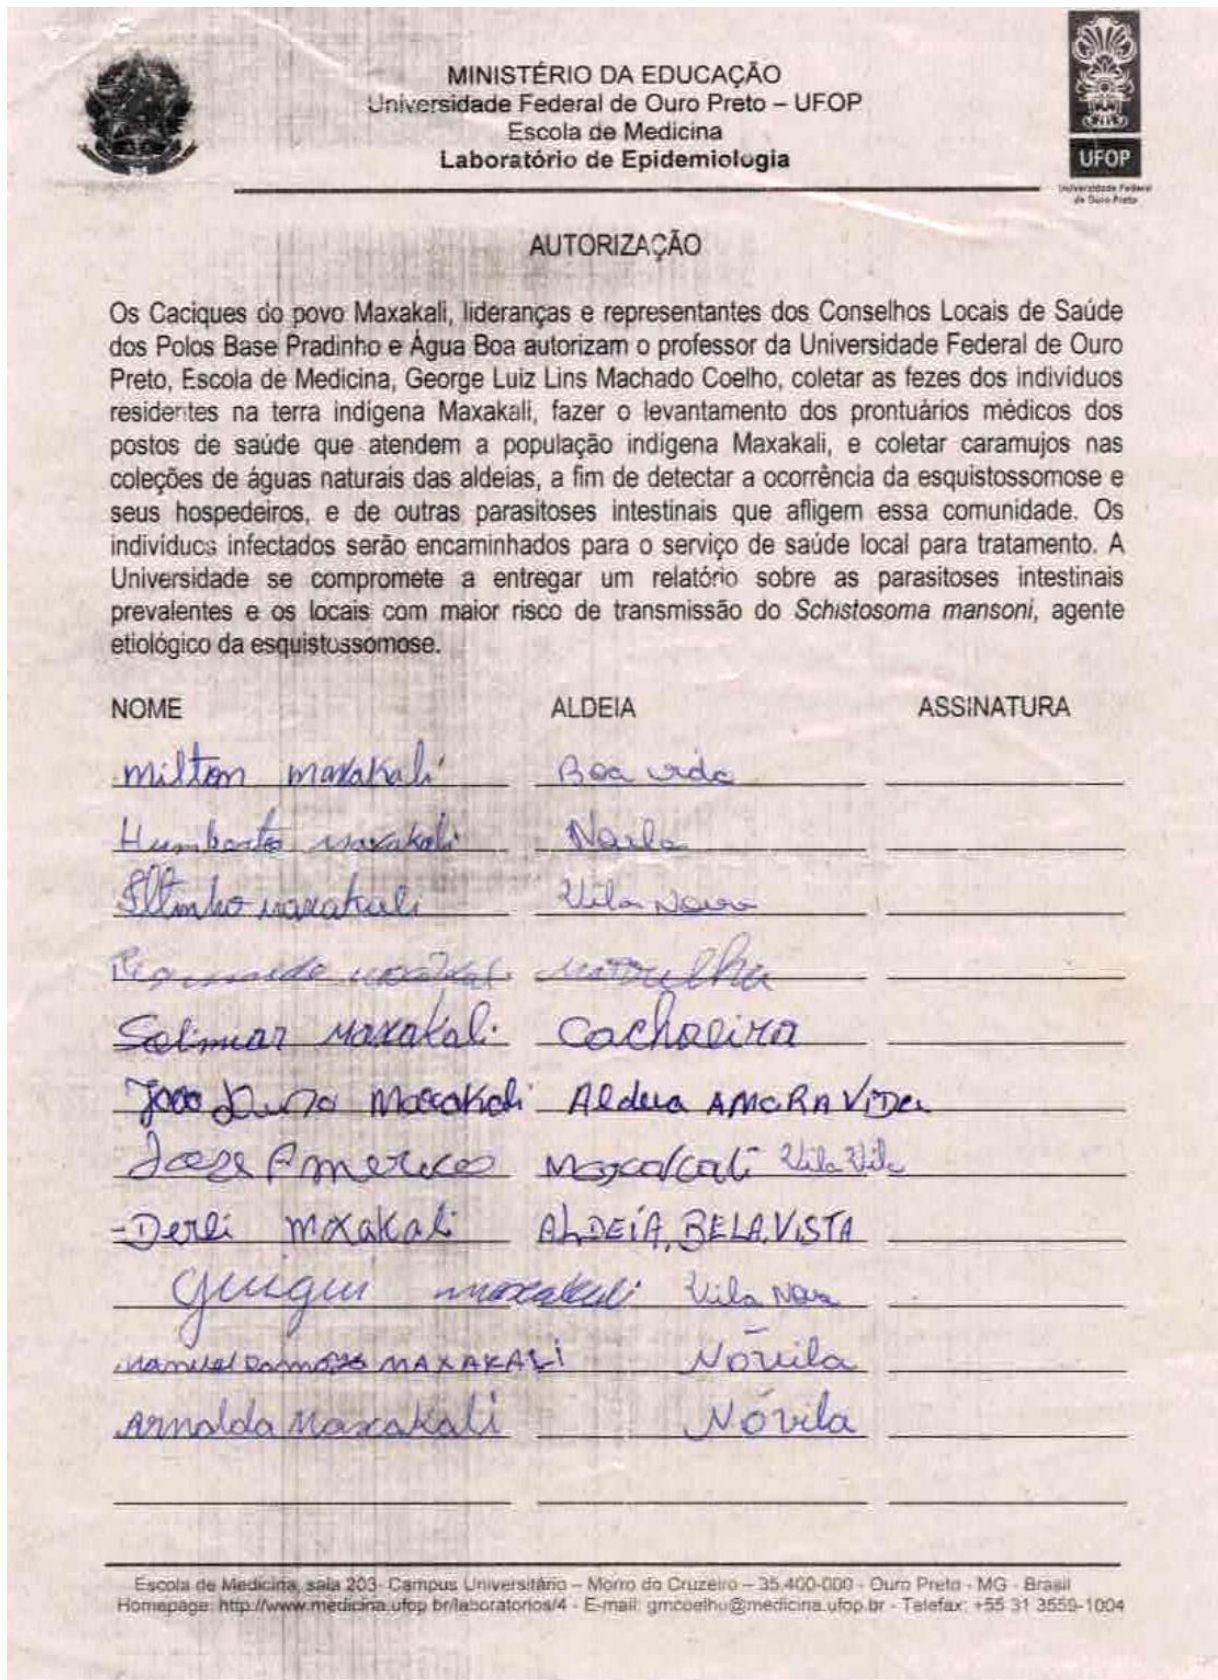 MINISTÉRIO DA EDUCAÇÃO
Universidade Federal de Ouro Preto – UFOP
Escola de Medicina
Laboratório de Epidemiologia
UFOP
Universidade Federal
de Ouro Preto
AUTORIZAÇÃO
Os Caciques do povo Maxakali, lideranças e representantes dos Conselhos Locais de Saúde
dos Polos Base Pradinho e Água Boa autorizam o professor da Universidade Federal de Ouro
Preto, Escola de Medicina, George Luiz Lins Machado Coelho, coletar as fezes dos indivíduos
residentes na terra indígena Maxakali, fazer o levantamento dos prontuários médicos dos
postos de saúde que atendem a população indígena Maxakali, e coletar caramujos nas
coleções de águas naturais das aldeias, a fim de detectar a ocorrência da esquistossomose e
seus hospedeiros, e de outras parasitoses intestinais que afligem essa comunidade. Os
indivíduos infectados serão encaminhados para o serviço de saúde local para tratamento. A
Universidade se compromete a entregar um relatório sobre as parasitoses intestinais
prevalentes e os locais com maior risco de transmissão do Schistosoma mansoni, agente
etiológico da esquistossomose.
NOME ALDEIA ASSINATURA
Milton maxakali Boa vida
Humberto maxakali
maxakali Vila Nova
maxakali
maxakali Cachoeira
João Maxakali Aldeia AMORA VIDA
Joze Americo Maxcalcali Vila
-Derli Mãxakali ALDEÍA, BELA, VISTA
Guigui maxakali Vila Nova
Manuel MAXAKALI Nóvila
Arnalda Maxakali Nóvila
Escola de Medicina, sala 203- Campus Universitário – Morro do Cruzeiro – 35.400-000 - Ouro Preto - MG - Brasil
Homepage: http://www.medicina.ufop.br/laboratorios/4 - E-mail: gmcoelho@medicina.ufop.br - Telefax: +55 31 3559-1004